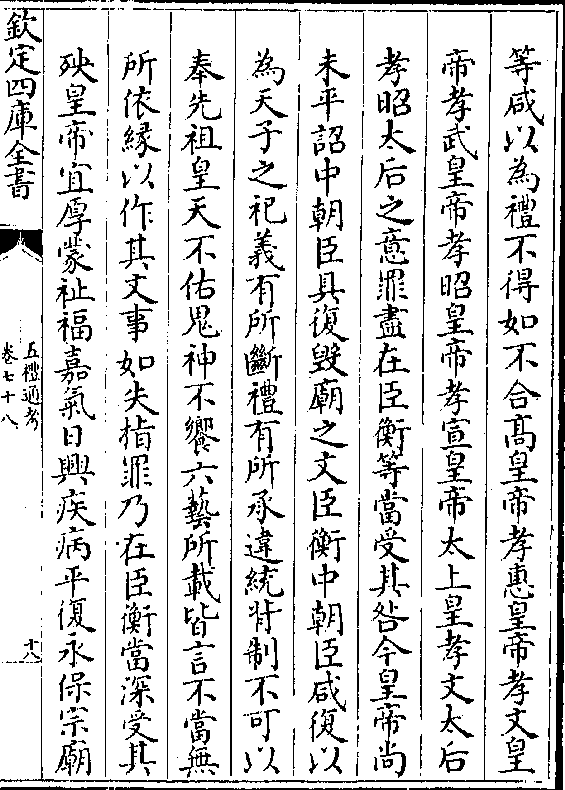 等咸以為禮不得如不合髙皇帝孝惠皇帝孝文皇
帝孝武皇帝孝昭皇帝孝宣皇帝太上皇孝文太后
孝昭太后之意罪盡在臣衡等當受其咎今皇帝尚
未平詔中朝臣具復毁廟之文臣衡中朝臣咸復以
為天子之祀義有所斷禮有所承違統背制不可以
奉先祖皇天不佑鬼神不饗六藝所載皆言不當無
所依緣以作其文事如失指罪乃在臣衡當深受其
殃皇帝宜厚蒙祉福嘉氣日興疾病平復永保宗廟
欽定四庫全書
五禮通考
卷七十八
十八